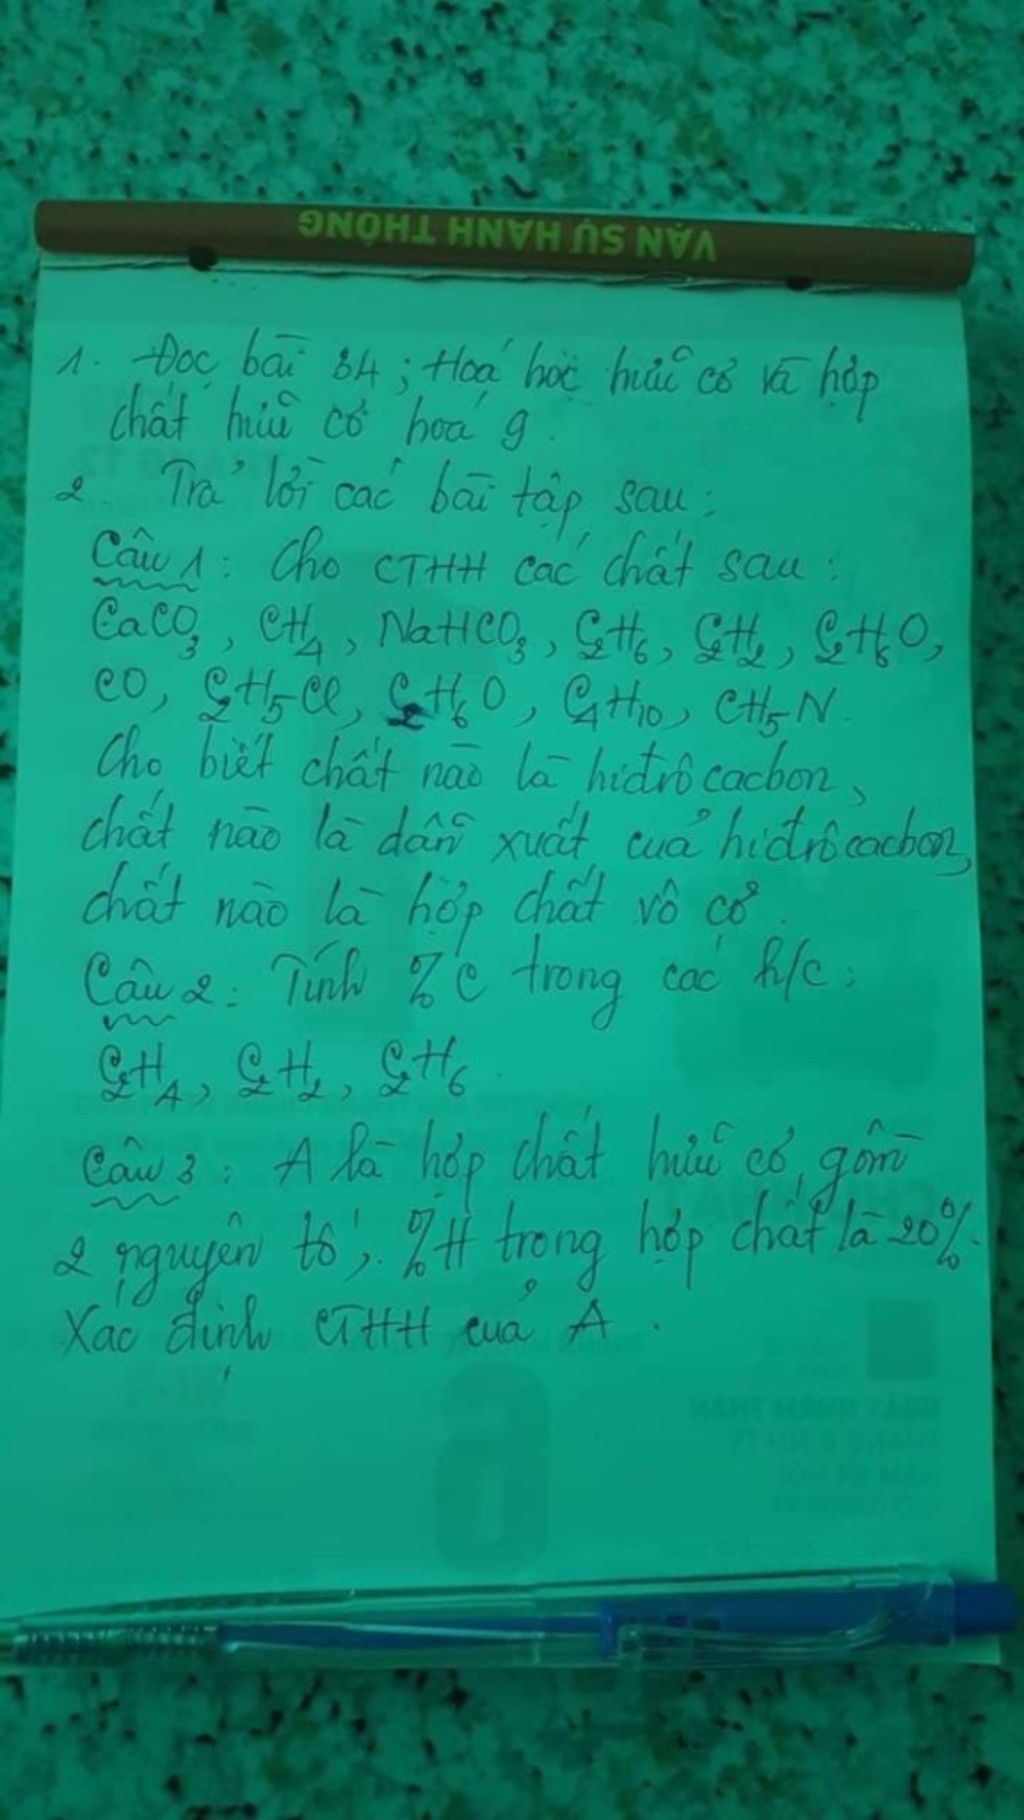 VẠN SỰ HANH THÔNG
1. Đọc bài 34; Hoá học hữu cơ và hợp
chất hữu cơ hoá 9.
2. Trả lời các bài tập sau:
Câu 1: Cho CTHH các chất sau:
CaCO₃, CH₄, NaHCO₃, C₂H₆, C₂H₂, C₂H₆O,
CO, C₂H₅Cl, C₂H₆O, C₄H₁₀, CH₅N.
Cho biết chất nào là hiđrô cacbon,
chất nào là dẫn xuất của hiđrô cacbon,
chất nào là hợp chất vô cơ.
Câu 2: Tính % C trong các h/c:
C₂H₄, C₂H₂, C₂H₆.
Câu 3: A là hợp chất hữu cơ, gồm
2 nguyên tố, %H trong hợp chất là 20%.
Xác định CTHH của A.